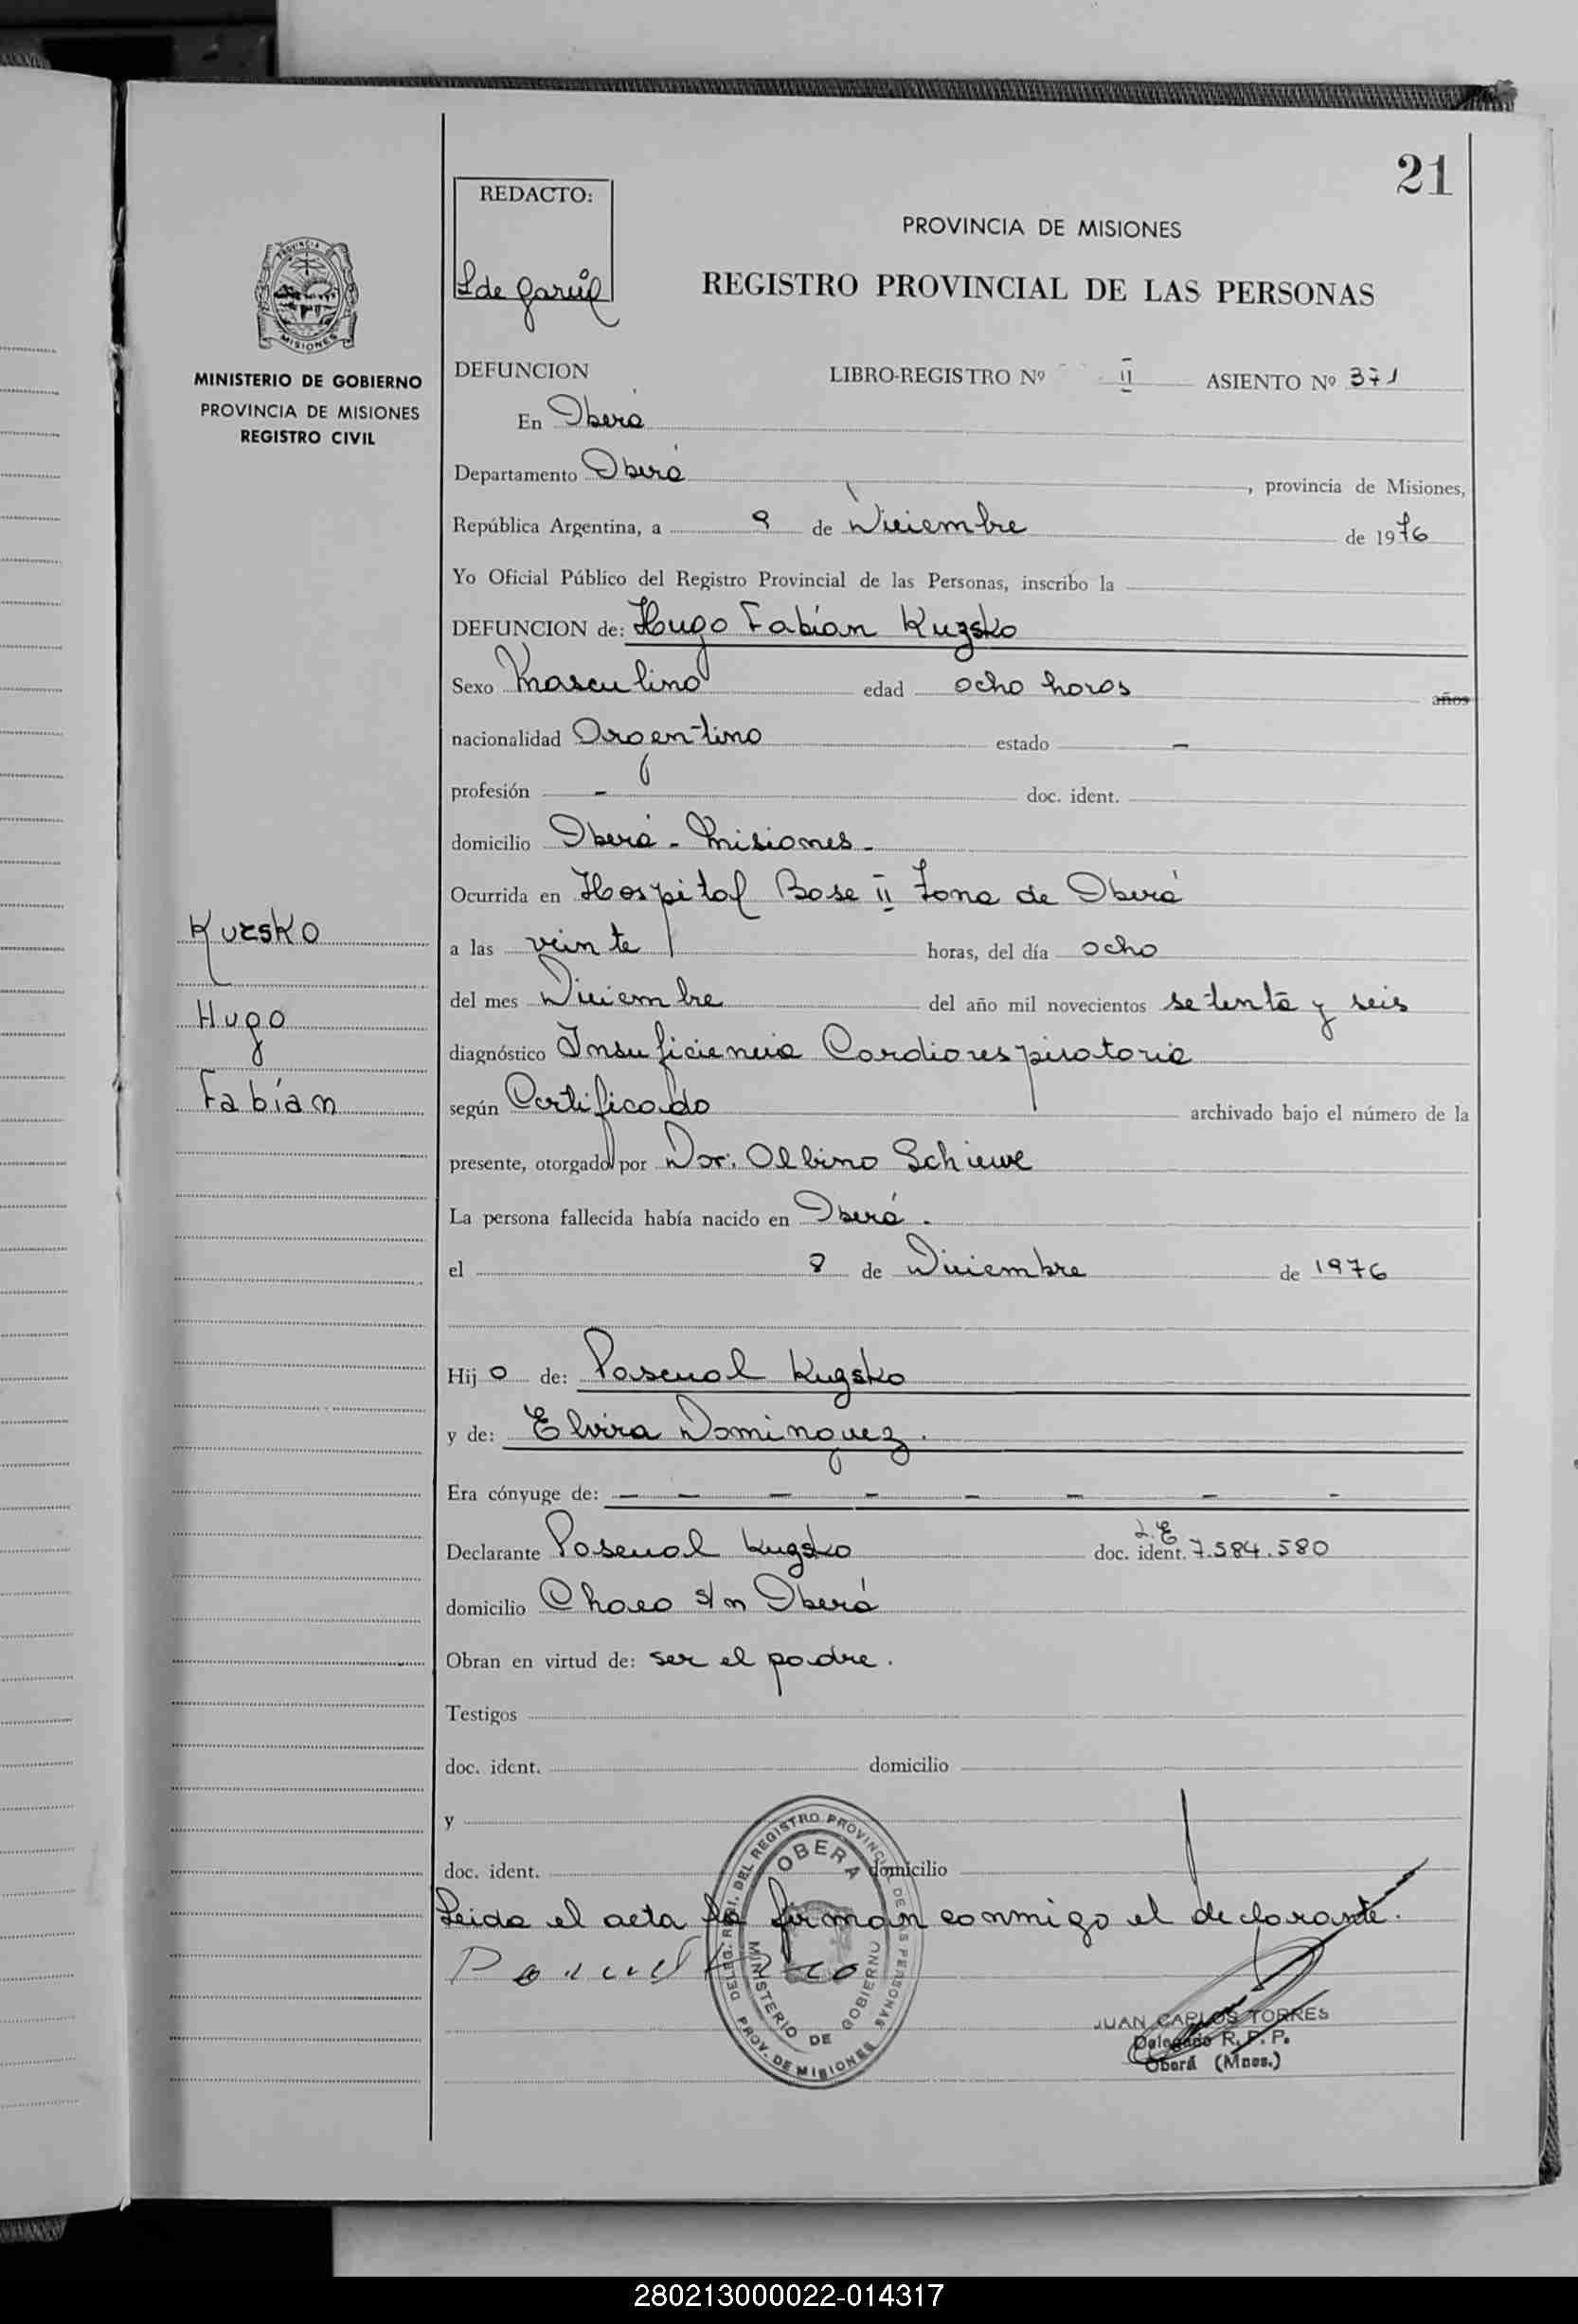 21
REDACTO:
L de
PROVINCIA DE MISIONES
REGISTRO PROVINCIAL DE LAS PERSONAS
PROVINCIA
MISIONES
MINISTERIO DE GOBIERNO
PROVINCIA DE MISIONES
REGISTRO CIVIL
DEFUNCION LIBRO-REGISTRO Nº II ASIENTO Nº 371
En Oberá
Departamento Oberá, provincia de Misiones,
República Argentina, a 9 de Diciembre de 1976
Yo Oficial Público del Registro Provincial de las Personas, inscribo la
DEFUNCION de: Hugo Fabían Kuzsko
Sexo Masculino edad ocho horas años
nacionalidad Argentino estado -
profesión - doc. ident.
domicilio Oberá - Misiones -
Ocurrida en Hospital Base II Zona de Oberá
a las veinte horas, del día ocho
del mes Diciembre del año mil novecientos setenta y seis
diagnóstico Insuficiencia Cardiorespiratoria
según Certificado archivado bajo el número de la
presente, otorgado por Dor. Albino Schiewe
La persona fallecida había nacido en Oberá.
el 8 de Diciembre de 1976
Hijo de: Pascual Kuzsko
y de: Elvira Dominguez.
Era cónyuge de: - - - - - - - -
Declarante Pascual Kuzsko doc. ident. L.E 7.584.580
domicilio Chaco s/n Oberá
Obran en virtud de: ser el padre.
Testigos
doc. ident. domicilio
y
doc. ident. domicilio
Leida el acta la firman conmigo el declarante.
Kuzsko
Hugo
Fabían
DELEG. REGI. DEL REGISTRO PROVINCIAL DE LAS PERSONAS
OBERA
MINISTERIO DE GOBIERNO
PROV. DE MISIONES
JUAN CARLOS TORRES
Delegado R. P. P.
Oberá (Mnes.)
280213000022-014317